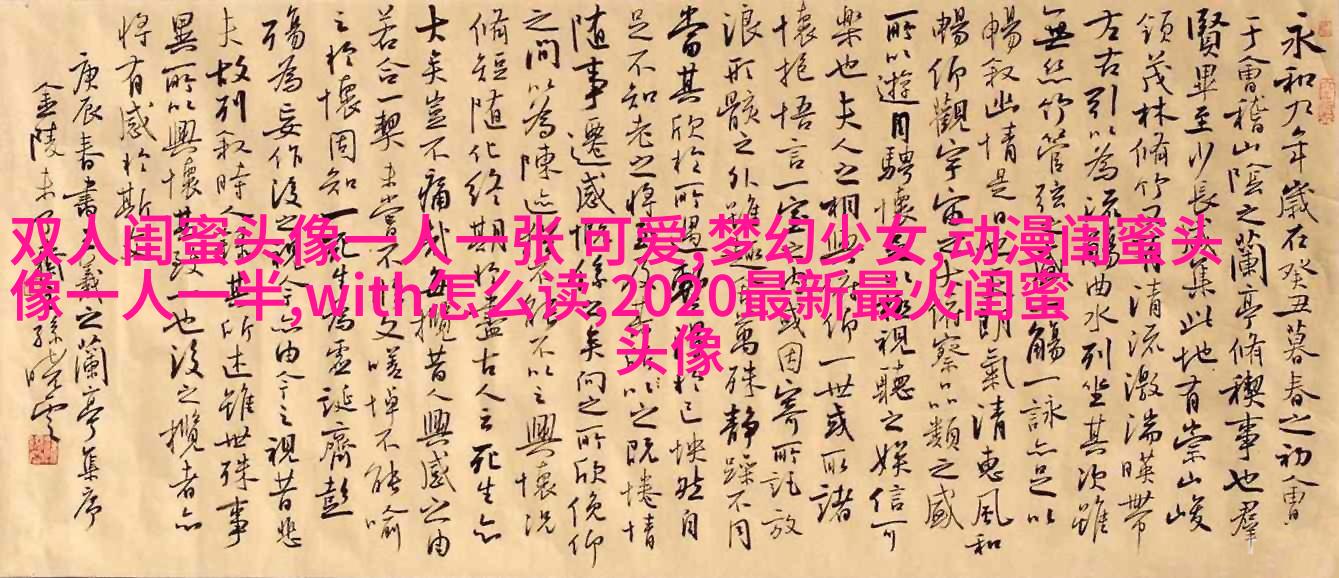 双人闺蜜头像一人一张 可爱,梦幻少女,动漫闺蜜头
像一人一半,with怎么读,2020最新最火闺蜜
头像
永和九年歲在癸丑暮春之初會
于會稽山陰之蘭亭脩禊事也羣
賢畢至少長咸集此地有崇山峻
領茂林脩竹又有清流激湍暎帶
左右引以為流觴曲水列坐其次雖
無絲竹管弦之盛一觴一詠亦足以
暢敘幽情是日也天朗氣清惠風和
暢仰觀宇宙之大俯察品類之盛
所以遊目騁懷足以極視聽之娛信可
樂也夫人之相與俯仰一世或取諸
懷抱悟言一室之內或因寄所託放
浪形骸之外雖趣舍萬殊靜躁不同
當其欣於所遇暫得於己怏然自
足不知老之將至及其所之既惓情
隨事遷感慨係之矣向之所欣俛仰
之間以為陳迹猶不能不以之興懷況
脩短隨化終期於盡古人云死生亦
大矣豈不痛哉每攬昔人興感之由
若合一契未嘗不臨文嗟悼不能喻
之於懷固知一死生為虛誕齊彭
殤為妄作後之視今亦由今之視昔悲
夫故列敘時人錄其所述雖世殊事
異所以興懷其致一也後之攬者亦
將有感於斯文
庚辰春書羲之蘭亭集序
金陵孫曉雲